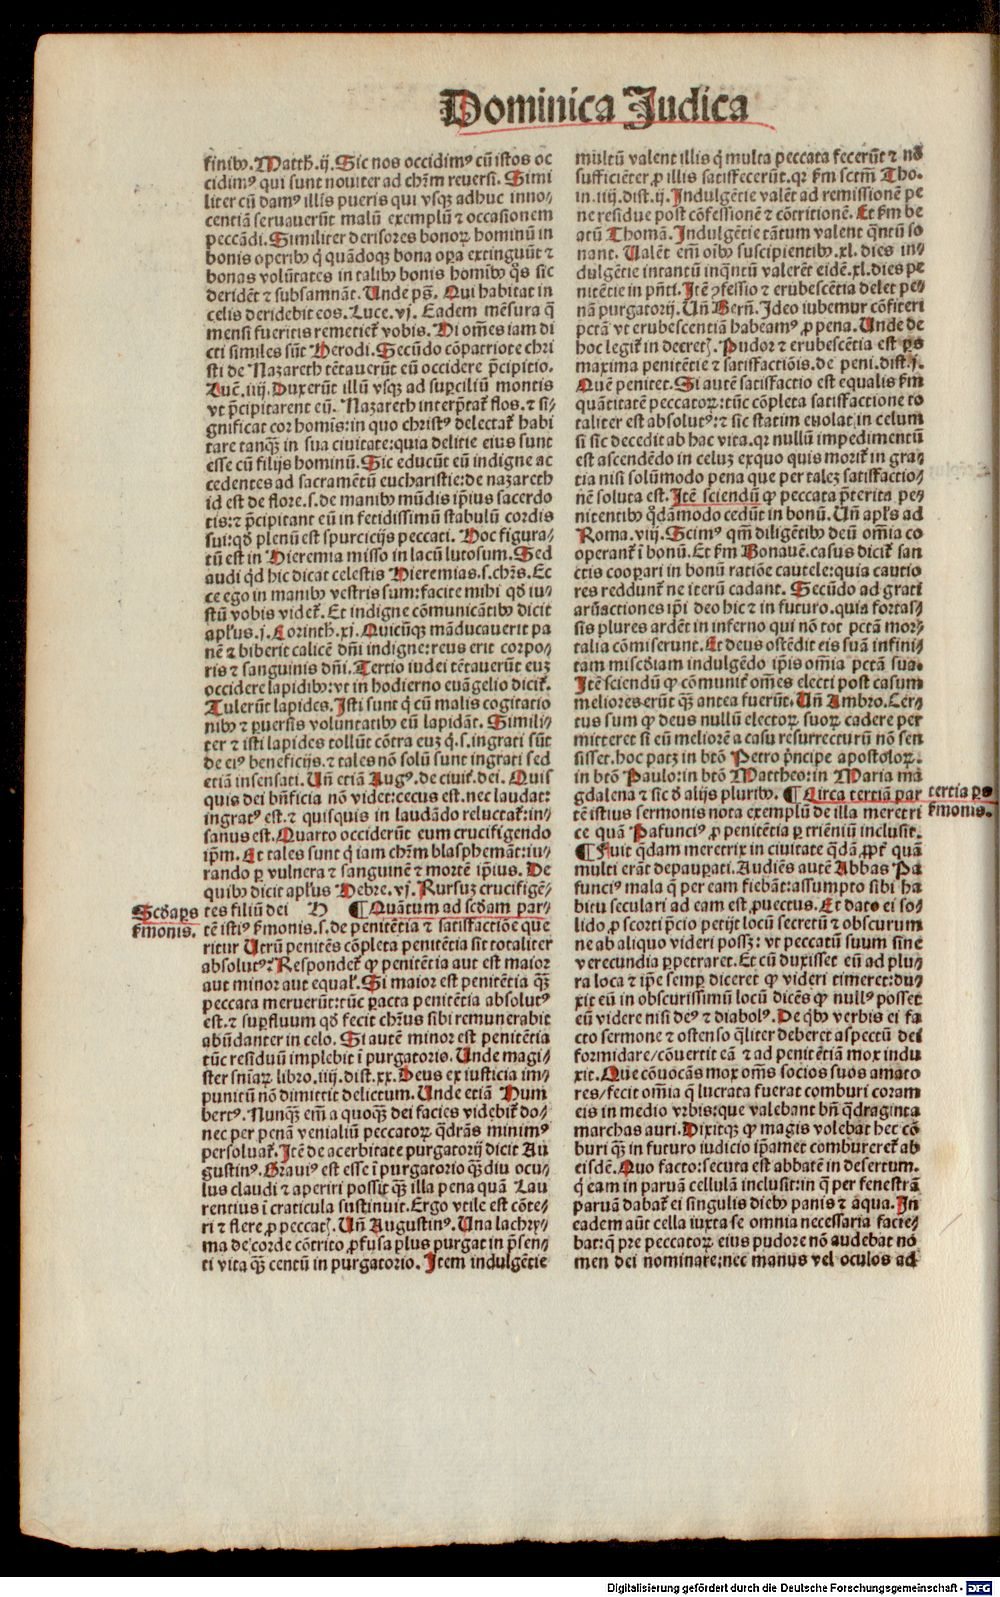 Dominica Judica
finibꝰ. Matth.ij. Sic nos occidimꝰ cū istos oc
cidimꝰ qui sunt nouiter ad chr̄m reuersi. Simi
liter cū damꝰ illis pueris qui vsqꝫ adhuc inno/
centiā seruauerūt malū exemplū ⁊ occasionem
peccādi. Similiter derisores bonoꝝ hominū in
bonis operibꝰ q̇ quādoqꝫ bona oꝑa extinguūt ⁊
bonas volūtates in talibꝰ bonis homībꝰ q̄s sic
deridēt ⁊ subsannāt. Unde ps̄. Qui habitat in
celis deridebit eos. Luce.vj. Eadem mēsura q̄
mensi fueritis remetiet᷑ vobis. Hi om̄es iam di
cti similes sūt Herodi. Secūdo cōpatriote chri
sti de Nazareth tētauerūt eū occidere p̄cipitio.
Luc̄.iiij. Duxerūt illū vsqꝫ ad suꝑciliū montis
vt p̄cipitarent eū. Nazareth interp̄tat᷑ flos. ⁊ si/
gnificat cor homis: in quo christꝰ delectat᷑ habi
tare tanqꝫ̄ in sua ciuitate: quia delitie eius sunt
esse cū filijs hominū. Sic educūt eū indigne ac
cedentes ad sacramētū eucharistie: de nazareth
id est de flore.s. de manibꝰ mūdis ip̄ius sacerdo
tis: ⁊ p̄cipitant eū in fetidissimū stabulū cordis
sui: qd̄ plenū est spurcicijs peccati. Hoc figura/
tū est in Hieremia misso in lacū lutosum. Sed
audi qd̄ hic dicat celestis Hieremias.s. chr̄s. Ec
ce ego in manibꝰ vestris sum: facite mihi qd̄ iu/
stū vobis videt᷑. Et indigne cōmunicātibꝰ dicit
apl̄us.j. Corinth.xj. Quicūqꝫ māducauerit pa
nē ⁊ biberit calicē dn̄i indigne: reus erit corpo/
ris ⁊ sanguinis dn̄i. Tertio iudei tētauerūt euꝫ
occidere lapidibꝰ: vt in hodierno euāgelio dicit᷑.
Tulerūt lapides. Isti sunt q̇ cū malis cogitatio
nibꝰ ⁊ ꝑuersis voluntatibꝰ eū lapidāt. Simili/
ter ⁊ isti lapides tollūt cōtra euꝫ q̇.s. ingrati sūt
de eiꝰ beneficijs. ⁊ tales nō solū sunt ingrati sed
etiā insensati. Un̄ etiā Augꝰ. de ciuit᷑. dei. Quis
quis dei bn̄ficia nō videt: cecus est. nec laudat:
ingratꝰ est. ⁊ quisquis in laudādo reluctat᷑: in/
sanus est. Quarto occiderūt eum crucifigendo
ip̄m. Et tales sunt q̇ iam chr̄m blasphemāt: iu/
rando ꝑ vulnera ⁊ sanguinē ⁊ mortē ip̄ius. De
quibꝰ dicit apl̄us Hebre.vj. Rursuꝫ crucifigē/
tes filiū dei H ¶ Quātum ad scd̄am par/
tē istiꝰ ẜmonis.s. de penitētia ⁊ satisfactiōe que
ritur Utrū penitēs cōpleta penitētia sit totaliter
absolutꝰ: Respondet᷑ ꝙ penitētia aut est maior
aut minor aut equal᷑. Si maior est penitētia qꝫ̄
peccata meruerūt: tūc ꝑacta penitētia absolutꝰ
est. ⁊ suꝑfluum qd̄ fecit chr̄us sibi remunerabit
abūdanter in celo. Si autē minor est penitētia
tūc residuū implebit ī purgatorio. Unde magi/
ster sn̄iaꝝ libro.iiij. dist.xx. Deus ex iusticia im/
punitū nō dimittit delictum. Unde etiā Hum
bertꝰ. Nunqꝫ̄ em̄ a quoqꝫ̄ dei facies videbit᷑ do/
nec per penā venialiū peccatoꝝ q̄drās minimꝰ
persoluat᷑. Itē de acerbitate purgatorij dicit Au
gustinꝰ. Grauiꝰ est esse ī purgatorio qꝫ̄diu ocu/
lus claudi ⁊ aperiri possit qꝫ̄ illa pena quā Lau
rentius ī craticula sustinuit. Ergo vtile est cōte/
ri ⁊ flere ꝓ peccat̕. Un̄ Augustinꝰ. Una lachry/
ma de corde cōtrito ꝓfusa plus purgat in p̄sen/
ti vita qꝫ̄ centū in purgatorio. Item indulgētie
Scd̄aps
ẜmonis.
multū valent illis q̇ multa peccata fecerūt ⁊ nō
sufficiēter ꝓ illis satisfecerūt. qꝛ ẜm sctm̄ Tho.
in.iiij. dist.ij. Indulgētie valēt ad remissionē pe
ne residue post cōfessionē ⁊ cōtritionē. Et ẜm be
atū Thomā. Indulgētie tātum valent q̄ntū so
nant. Ualēt em̄ oībꝰ suscipientibꝰ.xl. dies in/
dulgētie intantū inq̄ntū valerēt eidē.xl. dies pe
nitētie in pn̄ti. Itē ꝯfessio ⁊ erubescētia delet pe/
nā purgatorij. Un̄ Bern̄. Ideo iubemur cōfiteri
pctā vt erubescentiā habeamꝰ ꝓ pena. Unde de
hoc legit᷑ in decret̕. Pudor ⁊ erubescētia est ꝑs
maxima penitētie ⁊ satisfactiōis. de peni. dist.j.
Quē penitet. Si autē satisfactio est equalis ẜm
quātitatē peccatoꝝ: tūc cōpleta satisfactione to
taliter est absolutꝰ: ⁊ sic statim euolat in celum
si sic decedit ab hac vita. qꝛ nullū impedimentū
est ascendēdo in celuꝫ exquo quis morit᷑ in gra/
tia nisi solūmodo pena que per taleꝫ satisfactio/
nē soluta est. Itē sciendū ꝙ peccata p̄terita pe/
nitentibꝰ q̄dāmodo cedūt in bonū. Un̄ apl̄s ad
Roma.viij. Scimꝰ qm̄ diligētibꝰ deū om̄ia co
operant᷑ ī bonū. Et ẜm Bonauē. casus dicit᷑ san
ctis cooꝑari in bonū ratiōe cautele: quia cautio
res reddunt᷑ ne iterū cadant. Secūdo ad grati
arūactiones ip̄i deo hic ⁊ in futuro. quia fortas/
sis plures ardēt in inferno qui nō tot pctā mor/
talia cōmiserunt. Et deus ostēdit eis suā infini/
tam misc̄diam indulgēdo ip̄is om̄ia pctā sua.
Itē sciendū ꝙ cōmunit᷑ om̄es electi post casum
meliores erūt qꝫ̄ antea fuerūt. Un̄ Ambro. Cer/
tus sum ꝙ deus nullū electoꝝ suoꝝ cadere per
mitteret si eū meliorē a casu resurrecturū nō sen
sisset. hoc patꝫ in btō Petro p̄ncipe apostoloꝝ.
in btō Paulo: in btō Mattheo: in Maria ma
gdalena ⁊ sic d̄ alijs pluribꝰ. ¶ Circa tertiā par
tē istius sermonis nota exemplū de illa meretri
ce quā Pafunciꝰ ꝓ penitētia ꝑ triēniū inclusit.
¶ Fuit q̄dam meretrix in ciuitate q̄dā ꝓpt᷑ quā
multi erāt depauꝑati. Audiēs autē Abbas Pa
funciꝰ mala q̄ per eam fiebāt: assumpto sibi ha
bitu seculari ad eam est ꝓuectus. Et dato ei so/
lido ꝓ scorti p̄cio petijt locū secretū ⁊ obscurum
ne ab aliquo videri possꝫ: vt peccatū suum sine
verecundia ꝑpetraret. Et cū duxisset eū ad plu/
ra loca ⁊ ip̄e semꝑ diceret ꝙ videri timeret: du/
xit eū in obscurissimū locū dicēs ꝙ nullꝰ posset
eū videre nisi deꝰ ⁊ diabolꝰ. De q̇bꝰ verbis ei fa
cto sermone ⁊ ostenso q̄liter deberet aspectū dei
formidare/cōuertit eā ⁊ ad penitētiam mox indu
xit. Que cōuocās mox om̄s socios suos amato
res/fecit om̄ia q̄ lucrata fuerat comburi coram
eis in medio vrbis: que valebant bn̄ q̄draginta
marchas auri. Dixitqꝫ ꝙ magis volebat hec cō
buri qꝫ̄ in futuro iudicio ip̄amet combureret᷑ ab
eisdē. Quo facto: secuta est abbatē in desertum.
q̇ eam in paruā cellulā inclusit: in q̄ per fenestrā
paruā dabat᷑ ei singulis diebꝰ panis ⁊ aqua. In
eadem aūt cella iuxta se omnia necessaria facie/
bat: q̄ pre peccatoꝝ eius pudore nō audebat no
men dei nominare: nec manus vel oculos ad
tertia ps
ẜmonis.
Digitalisierung gefördert durch die Deutsche Forschungsgemeinschaft - DFG